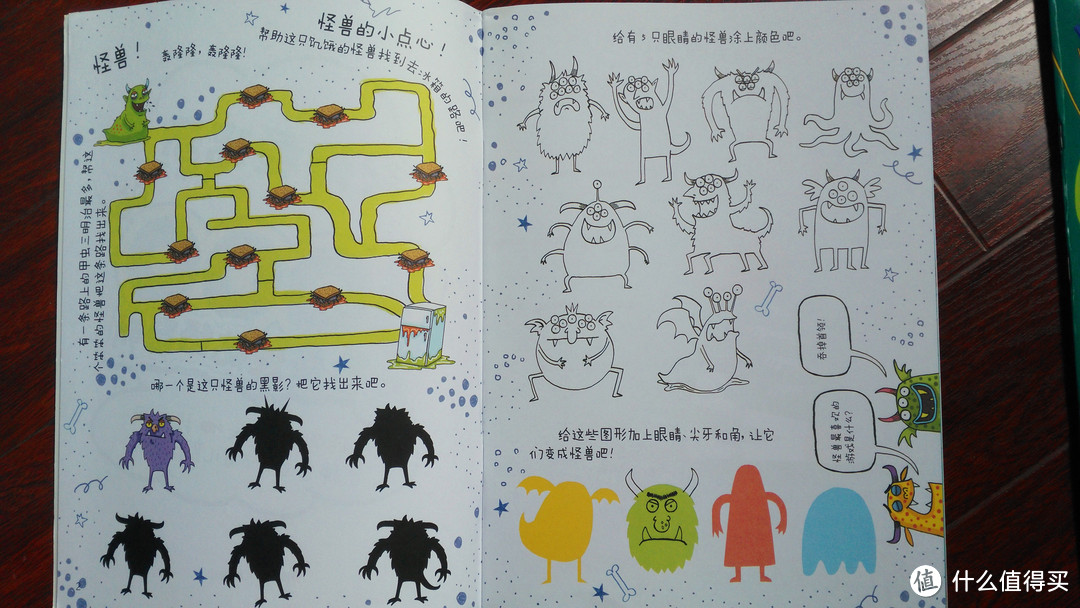 怪兽的小点心！
帮助这只饥饿的怪兽找到去冰箱的路吧！
怪兽！
轰隆隆，轰隆隆！
有一条路上的甲虫三明治最多，帮这
个笨笨的怪兽把这条路找出来。
哪一个是这只怪兽的黑影？把它找出来吧。
给有5只眼睛的怪兽涂上颜色吧。
吞掉首领！
怪兽最喜欢的
游戏是什么？
给这些图形加上眼睛、尖牙和角，让它
们变成怪兽吧！
值 什么值得买